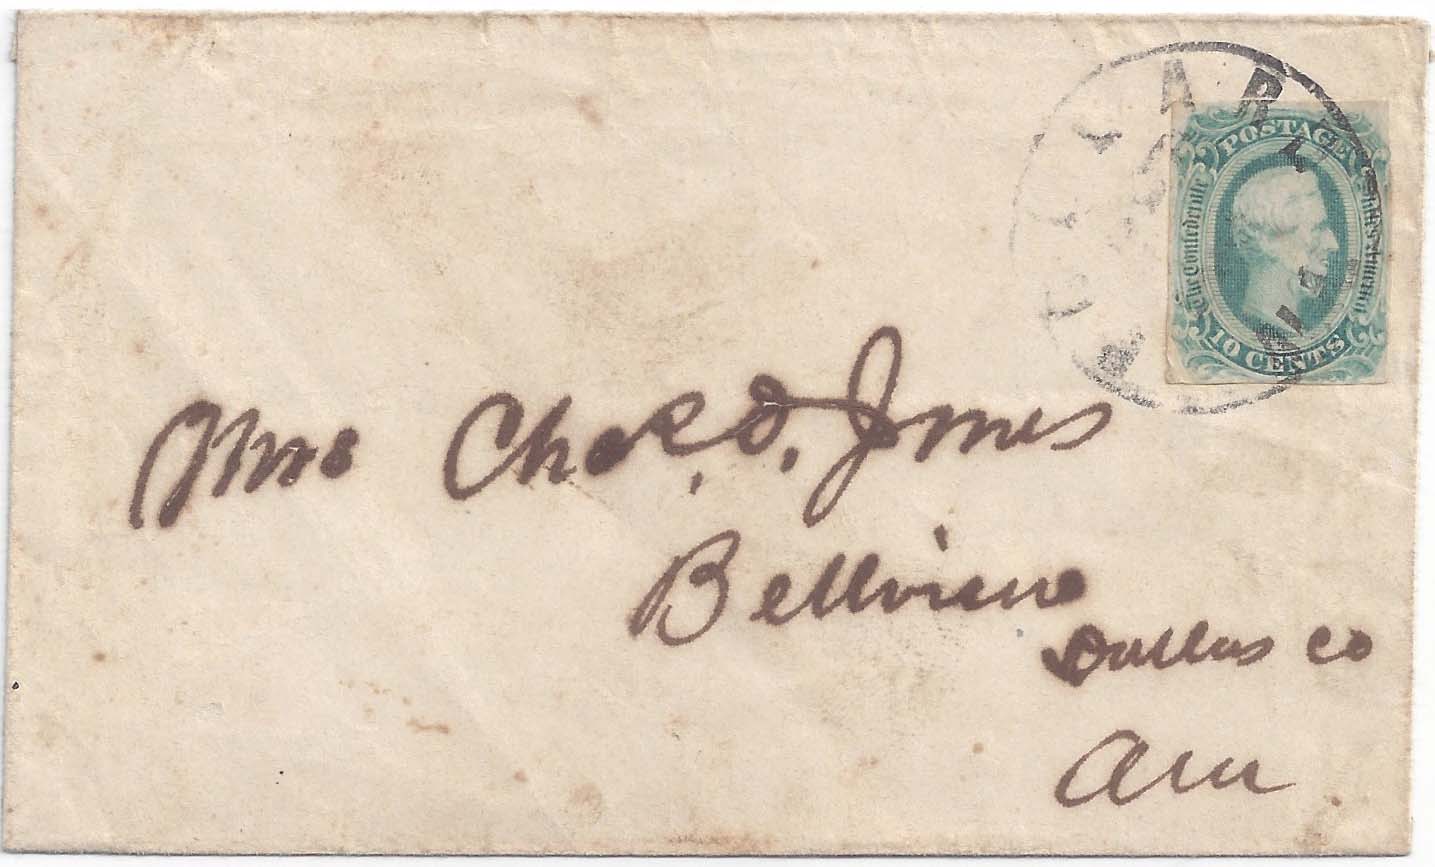 POSTAGE
The Confederate
States of America
10 CENTS
Mrs Chas. D. Jones
Bellview
Dallas Co
Ala